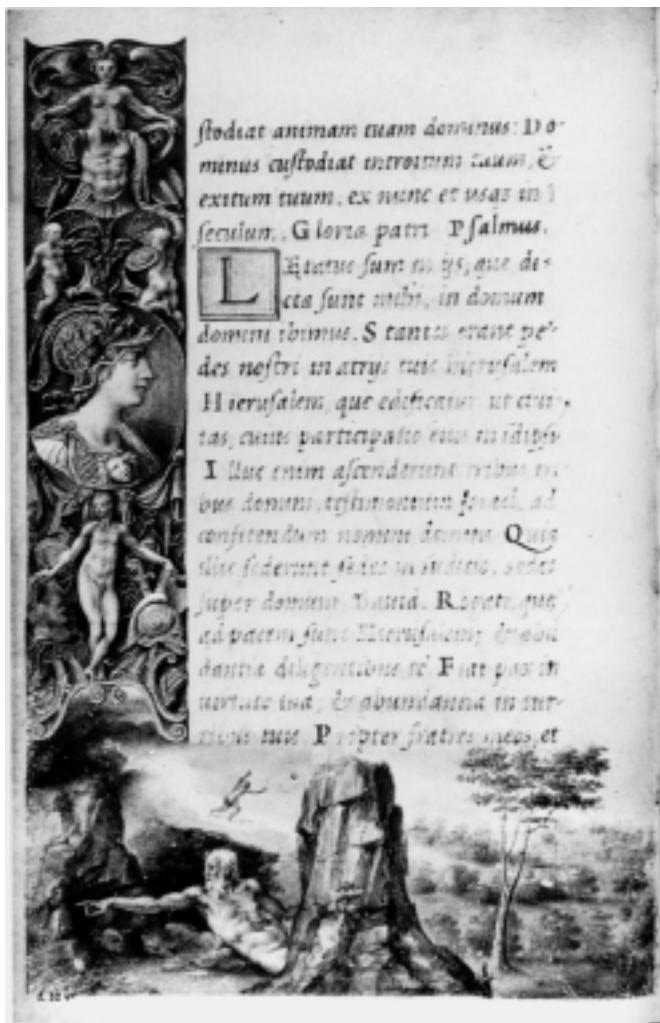 ſtodiat animam tuam dominus: Do-
minus cuſtodiat introitum tuum, &
exitum tuum, ex nunc et usqs in
ſeculum. Gloria patri Pſalmus.
LEtatus ſum in ijs, que di-
cta ſunt mihi, in domum
domini ibimus. Stantes erant pe-
des noſtri in atrijs tuis hieruſalem
Hieruſalem, que edificatur ut ciui-
tas, cuius participatio eius in idipſū
Illuc enim aſcenderunt tribus tri-
bus domini, teſtimonium Iſrael, ad
confitendum nomini domini Quia
illic ſederunt ſedes in iudicio, ſedes
ſuper domum Dauid. Rogate, que
ad pacem ſunt Hieruſalem, & abū
dantia diligentibus te Fiat pax in
uirtute tua, & abundantia in tur-
ribus tuis Propter fratres meos, et